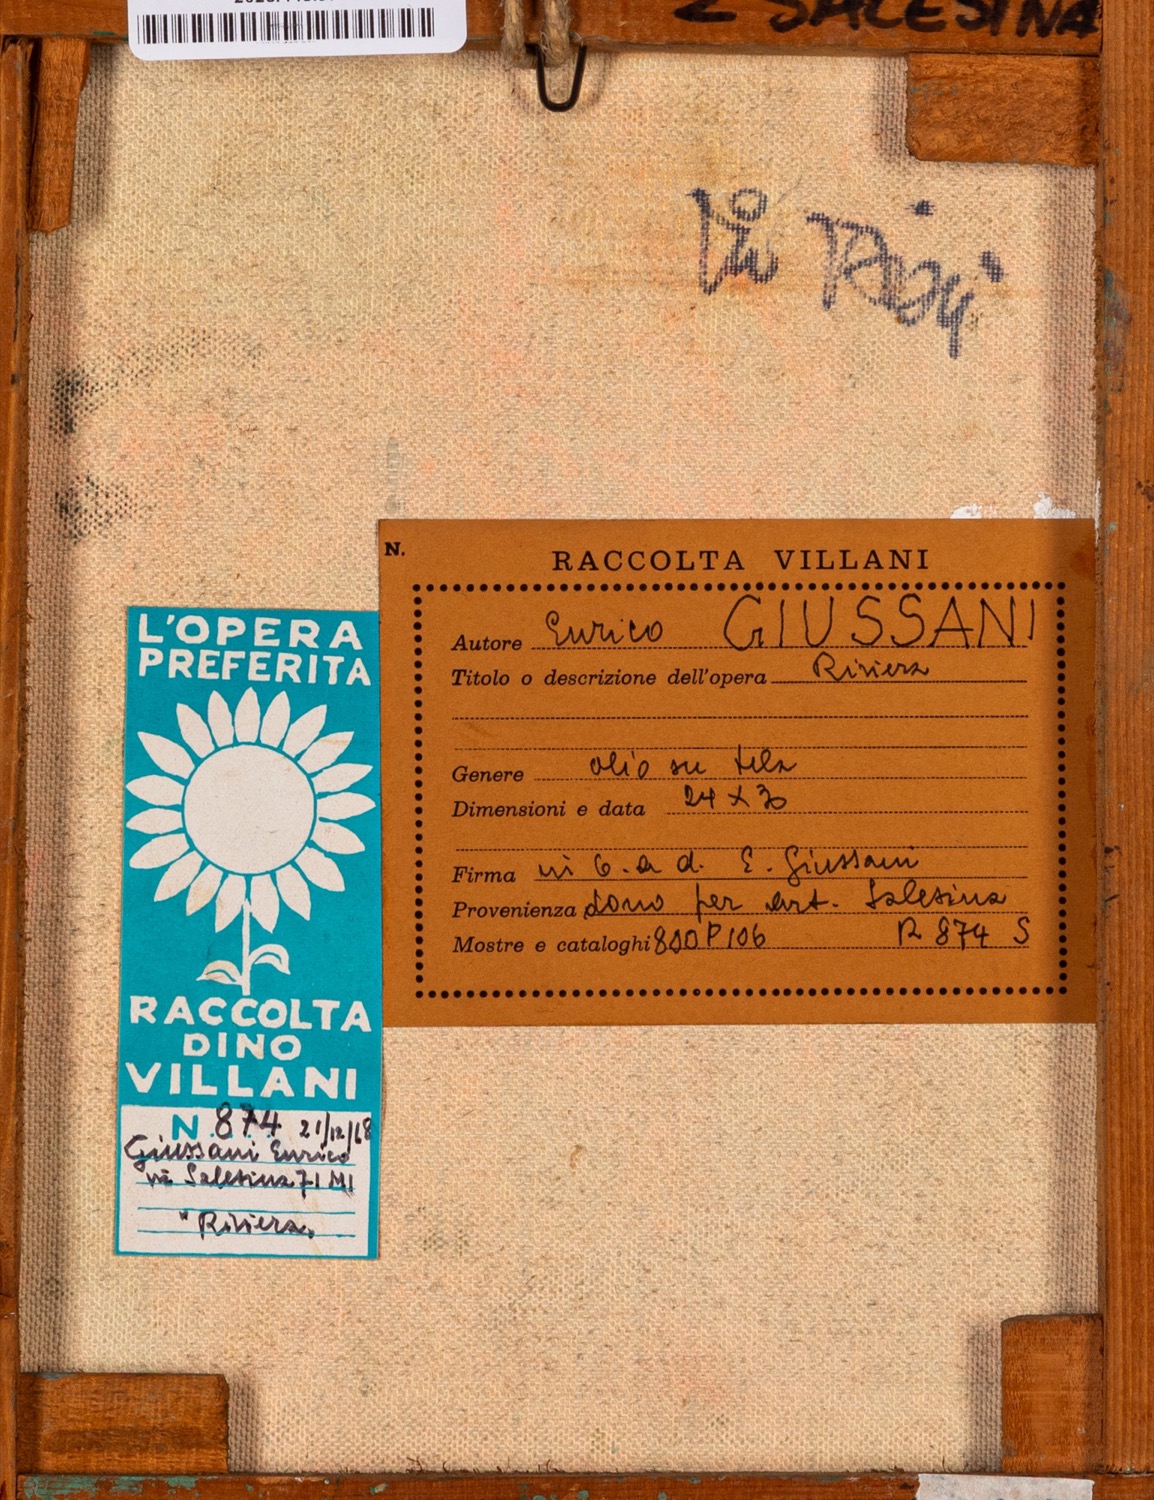 2 SALESINA
N.
RACCOLTA VILLANI
Autore Enrico GIUSSANI
Titolo o descrizione dell'opera Riviera
Genere olio su tela
Dimensioni e data 24 x 30
Firma in b. a d. E. Giussani
Provenienza dono per art. Salesina
Mostre e cataloghi 800 P 106 R 874 S
L'OPERA
PREFERITA
RACCOLTA
DINO
VILLANI
N 874 21/12/68
Giussani Enrico
via Salesina 71 MI
"Riviera"